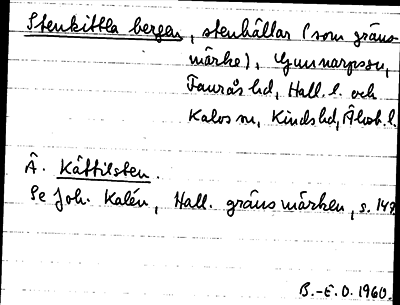 Stenkittla bergen, stenhällar (som gräns-
märke), Gunnarpsson,
Faurås hd, Hall. l. och
Kalvsm, Kinds hd, Älvsb. l.
Å. Kättilsten.
Se Joh. Kalén, Hall. gränsmärken, s. 148
B.-E. O. 1960.